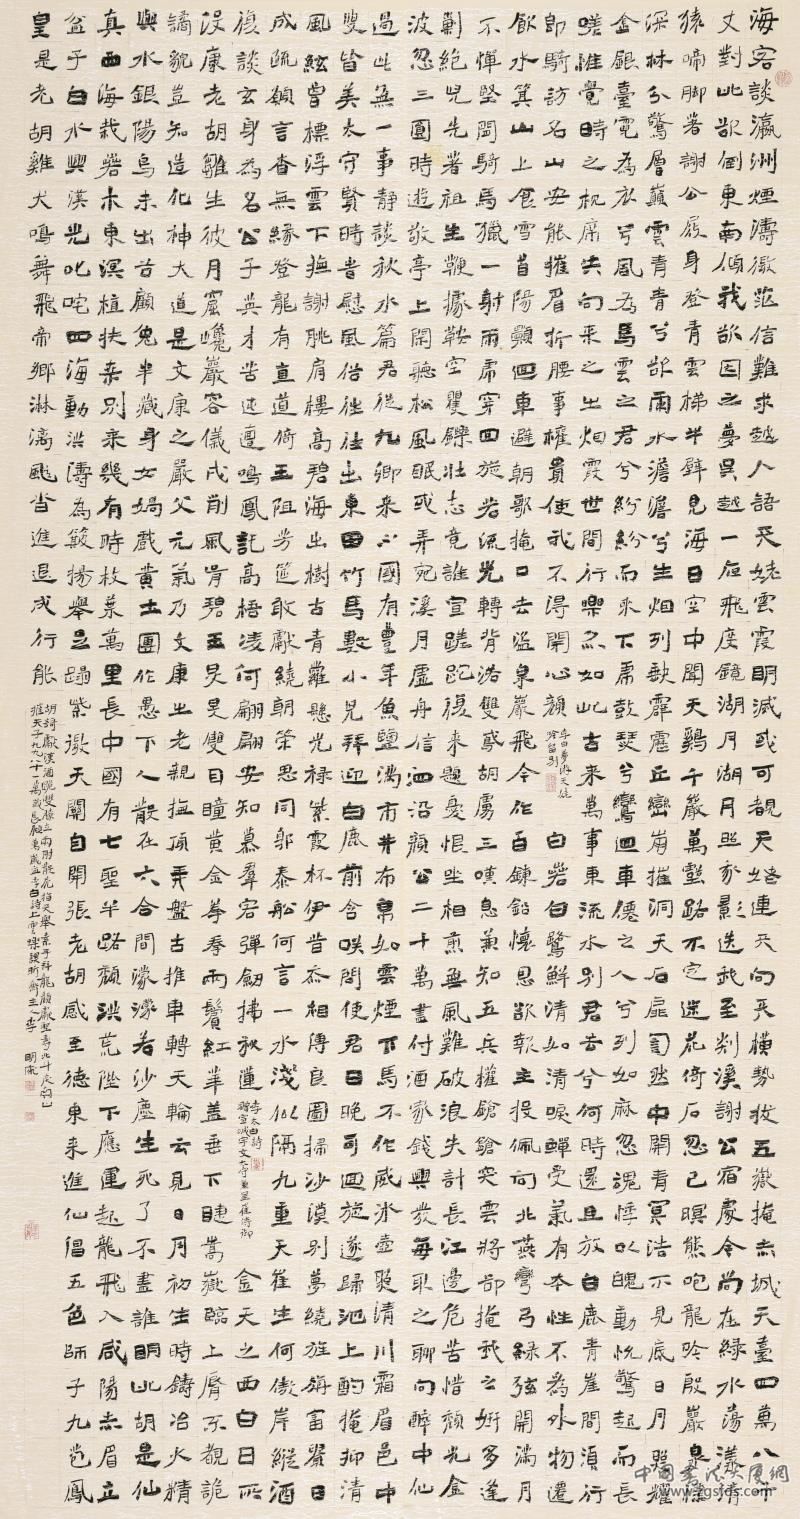 海客談瀛洲煙濤微茫信難求越人語天姥雲霞明滅或可覩天姥連天向天橫勢拔五嶽掩赤城天臺四萬八千
丈對此欲倒東南傾我欲因之夢吳越一夜飛度鏡湖月湖月照我影送我至剡溪謝公宿處今尚在綠水蕩漾清
猿啼腳著謝公屐身登青雲梯半壁見海日空中聞天雞千巖萬壑路不定迷花倚石忽已暝熊咆龍吟殷巖泉慄
深林兮驚層巔雲青青兮欲雨水澹澹兮生煙列缺霹靂丘巒崩摧洞天石扉訇然中開青冥浩不見底日月照耀
金銀臺霓為衣兮風為馬雲之君兮紛紛而來下虎鼓瑟兮鸞迴車僊之人兮列如麻忽魂悸以魄動怳驚起而長
嗟惟覺時之枕席失向來之煙霞世間行樂亦如此古來萬事東流水別君去兮何時還且放白鹿青崖間須行
即騎訪名山安能摧眉折腰事權貴使我不得開心顏
李白夢游天姥
吟留別
白若白鷺鮮清如清唳蟬受氣有本性不為外物遷
飲水箕山上食雪首陽巔迴車避朝歌掩口去盜泉巖飛今作百鍊鉛懷恩欲報主投佩向北燕彎弓綠弦開滿月
不憚堅閑騎馬獵一射兩虎穿回旋若流光轉背落雙鳶胡虜三嘆息兼知五兵權鎗鎗突雲將卻掩我之妍多逢
剿絕兒先著祖生鞭據鞍空矍鑠壯志竟誰宣蹉跎復來題憂恨坐相煎無風難破浪失計長江邊危苦惜頹光金
波忽三圓時遊敬亭上閑聽松風眠或弄宛溪月虛舟信洄沿顏公二十萬盡付酒家錢興發每取之聊向醉中仙
過此無一事靜談秋水篇君從九卿來水國有豐年魚鹽滿市井布帛如雲煙下馬不作威冰壺照清川霜眉邑中
叟皆美太守賢時時慰風俗往往出東田竹馬數小兒拜迎白鹿前含笑問使君日晚可迴旋遂歸池上酌掩抑清
風絃曾標浮雲下撫謝朓肩樓高碧海出樹古青蘿懸光祿紫霞杯伊昔忝相傳良圖掃沙漠別夢繞旌旃富貴日
成疏願言杳無緣登龍有直道倚玉阻芳筵敢獻繞朝策思同郭泰船何言一水淺似隔九重天崔生何傲岸縱酒
復談玄身為名公子英才苦迍邅鳴鳳託高梧凌何翩翩安知慕群客彈劍拂秋蓮
李太白詩
贈宣城宇文太守兼呈崔侍御
金天之西白日所
沒康老胡雛生彼月窟巉巖容儀戌削風骨碧玉炅炅雙目瞳黃金拳拳兩鬢紅華蓋垂下睫嵩嶽臨上脣不覩詭
譎貌豈知造化神大道是文康之嚴父元氣乃文康之老親撫頂弄盤古推車轉天輪云見日月初生時鑄冶火精
與水銀陽烏未出谷顧兔半藏身女媧戲黃土團作愚下人散在六合間濛濛若沙塵生死了不盡誰明此胡是仙
真西海栽若木東溟植扶桑別來幾有時枝葉萬里長中國有七聖半路頹洪荒陛下應運起龍飛入咸陽赤眉立
盆子白水興漢光叱咤四海動洪濤為簸揚舉足蹋紫微天關自開張老胡感至德東來進仙倡五色師子九苞鳳
皇是老胡雞犬鳴舞飛帝鄉淋漓颯沓進退成行能
胡歌獻漢酒跪雙膝立兩肘散花指天舉素手拜龍顏獻聖壽北斗戾南山
摧天子九九八十一萬歲長傾萬歲杯李白詩上雲樂